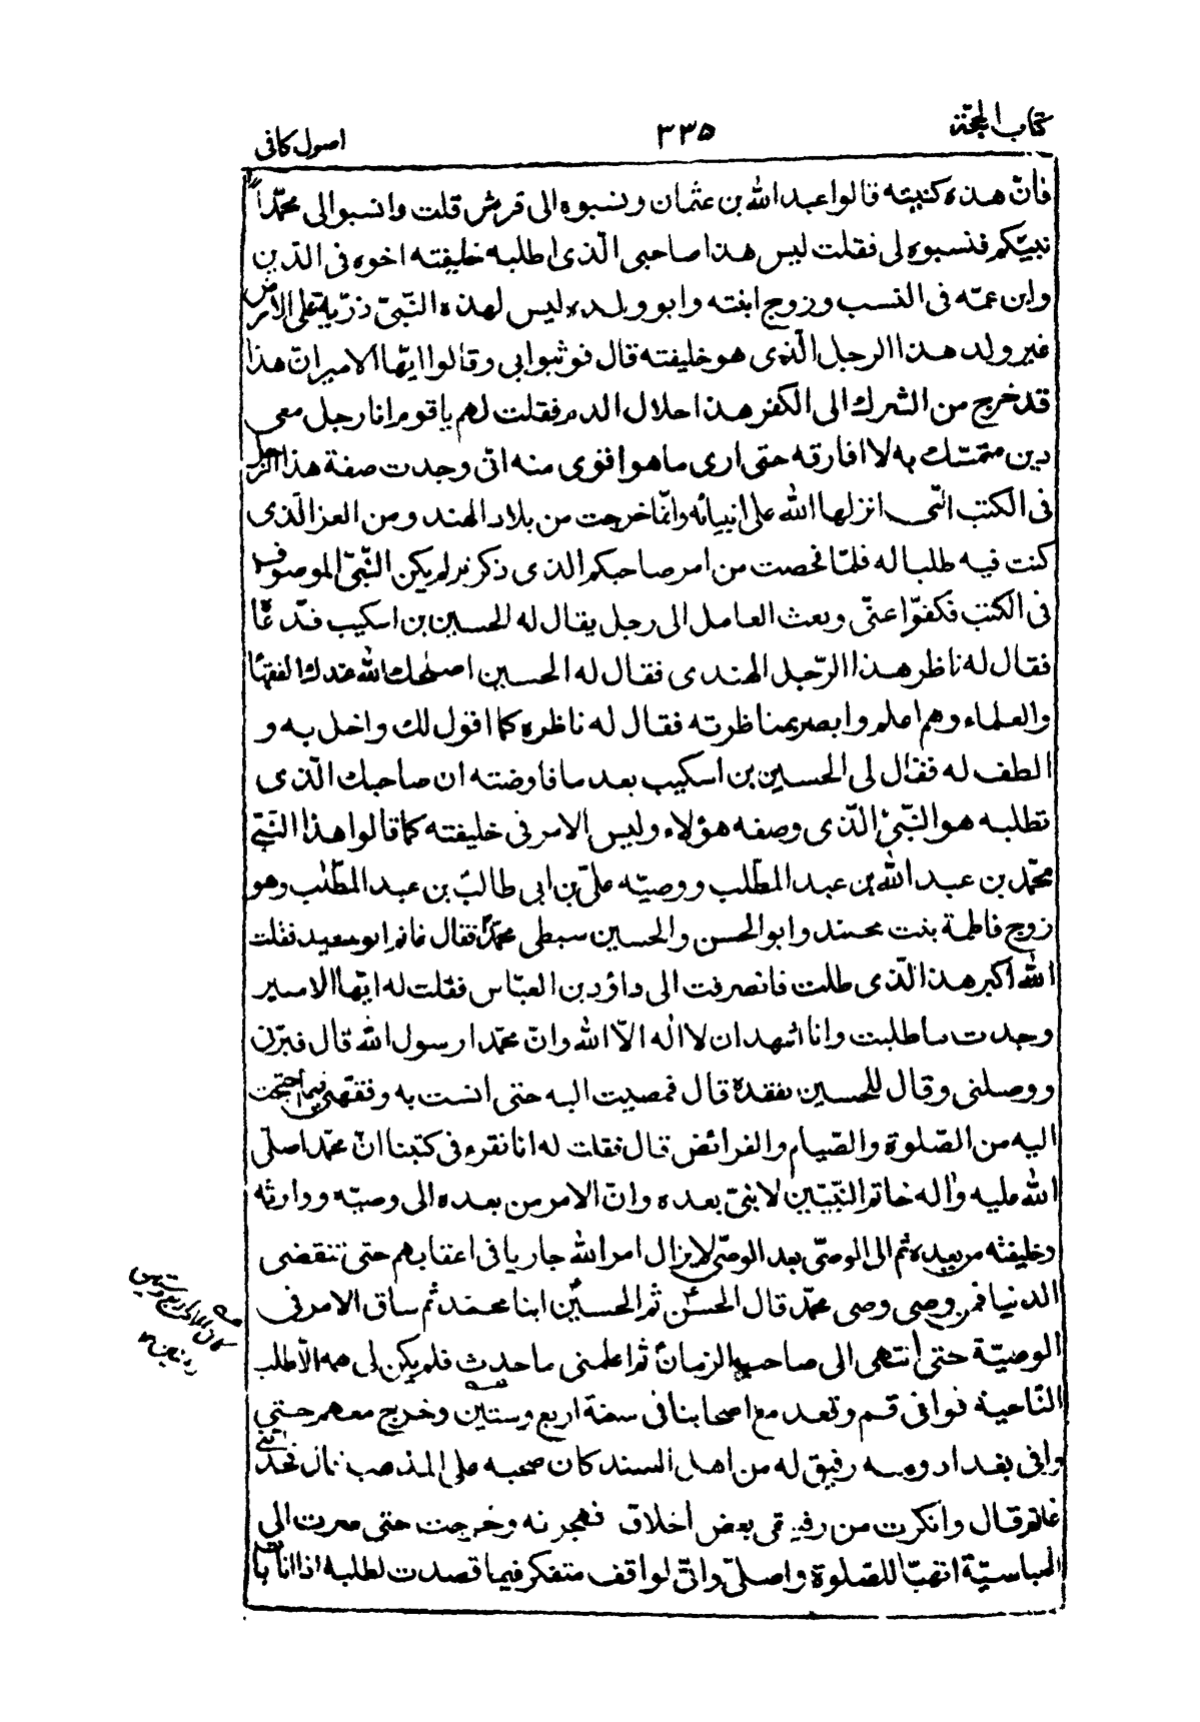 كتاب الحجّة
٣٣٥
اصول كافى
فانّ هذه كنيته قالوا عبد الله بن عثمان ونسبوه الى قريش قلت وانسبوا لى محمّداً
نبيّكم فنسبوه لى فقلت ليس هذا صاحبى الّذى اطلبه خليفته اخوه فى الدّين
وابن عمّه فى النسب وزوج ابنته وابو ولده ليس لهذه النّبىّ ذرّية على الارض
غير ولد هذا الرجل الّذى هو خليفته قال فوثبوا بى وقالوا ايّها الامير انّ هذا
قد خرج من الشرك الى الكفر هذا حلال الدم فقلت لهم يا قوم انا رجل معى
دين متمسّك به لا افارقه حتى ارى ما هو اقوى منه انّى وجدت صفة هذا الرّجل
فى الكتب الّتى انزلها الله على انبيائه وانّما خرجت من بلاد الهند ومن العز الّذى
كنت فيه طلبا له فلمّا فحصت من امر صاحبكم الذى ذكرتم لم يكن النّبىّ الموصوف
فى الكتب فكفّوا عنّى وبعث العامل الى رجل يقال له الحسين بن اسكيب فدعا
فقال له ناظر هذا الرّجل الهندى فقال له الحسين اصلحك الله عندك الفقهاء
والعلماء وهم اعلم وابصر بمناظرته فقال له ناظره كما اقول لك واخل به و
الطف له فقال لى الحسين بن اسكيب بعد ما فاوضته ان صاحبك الّذى
تطلبه هو النّبىّ الّذى وصفه هؤلاء وليس الامر فى خليفته كما قالوا هذا النّبىّ
محمّد بن عبد الله بن عبد المطّلب ووصيّه علىّ بن ابى طالب بن عبد المطّلب وهو
زوج فاطمة بنت محمد وابو الحسن والحسين سبطى محمّد فقال غانم ابو سعيد فقلت
الله اكبر هذا الّذى طلبت فانصرفت الى داؤد بن العبّاس فقلت له ايّها الامير
وجدت ما طلبت وانا اشهد ان لا اله الّا الله وانّ محمّدا رسول الله قال فبرّنى
ووصلنى وقال للحسين تفقده قال فمضيت اليه حتى انست به وفقّهنى فيما احتجت
اليه من الصّلوة والصّيام والفرائض قال فقلت له انا نقرء فى كتبنا انّ محمّدا صلّى
الله عليه واله خاتم النّبيّين لا نبىّ بعده وانّ الامر من بعده الى وصيّه ووارثه
وخليفته من بعده ثم الى الوصىّ بعد الوصىّ لا يزال امر الله جاريا فى اعقابهم حتى تنقضى
الدنيا فمن وصى وصى محمّد قال الحسن ثم الحسين ابنا محمد ثم ساق الامر فى
الوصيّة حتى انتهى الى صاحب الزمان ثم اعلمنى ما حدث فلم يكن لى همه الّا طلب
النّاحية فوافى قم وقعد مع اصحابنا فى سنة اربع وستين وخرج معهم حتى
وافى بغداد ومعه رفيق له من اهل السند كان صحبه على المذهب قال فحدّثنى
غانم قال وانكرت من رفيقى بعض اخلاقه فهجرته وخرجت حتى صرت الى
العباسيّة اتهيّا للصّلوة واصلّى وانّى لواقف متفكر فيما قصدت لطلبه اذا انا بآت